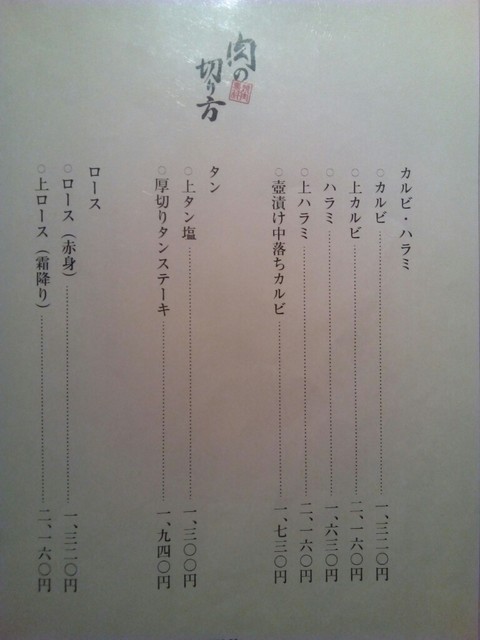 肉の
切り方
カルビ・ハラミ
○カルビ 一、三二〇円
○上カルビ 二、一六〇円
○ハラミ 一、六三〇円
○上ハラミ 二、一六〇円
○壺漬け中落ちカルビ 一、七三〇円
タン
○上タン塩 一、三〇〇円
○厚切りタンステーキ 一、九四〇円
ロース
○ロース（赤身） 一、三二〇円
○上ロース（霜降り） 二、一六〇円